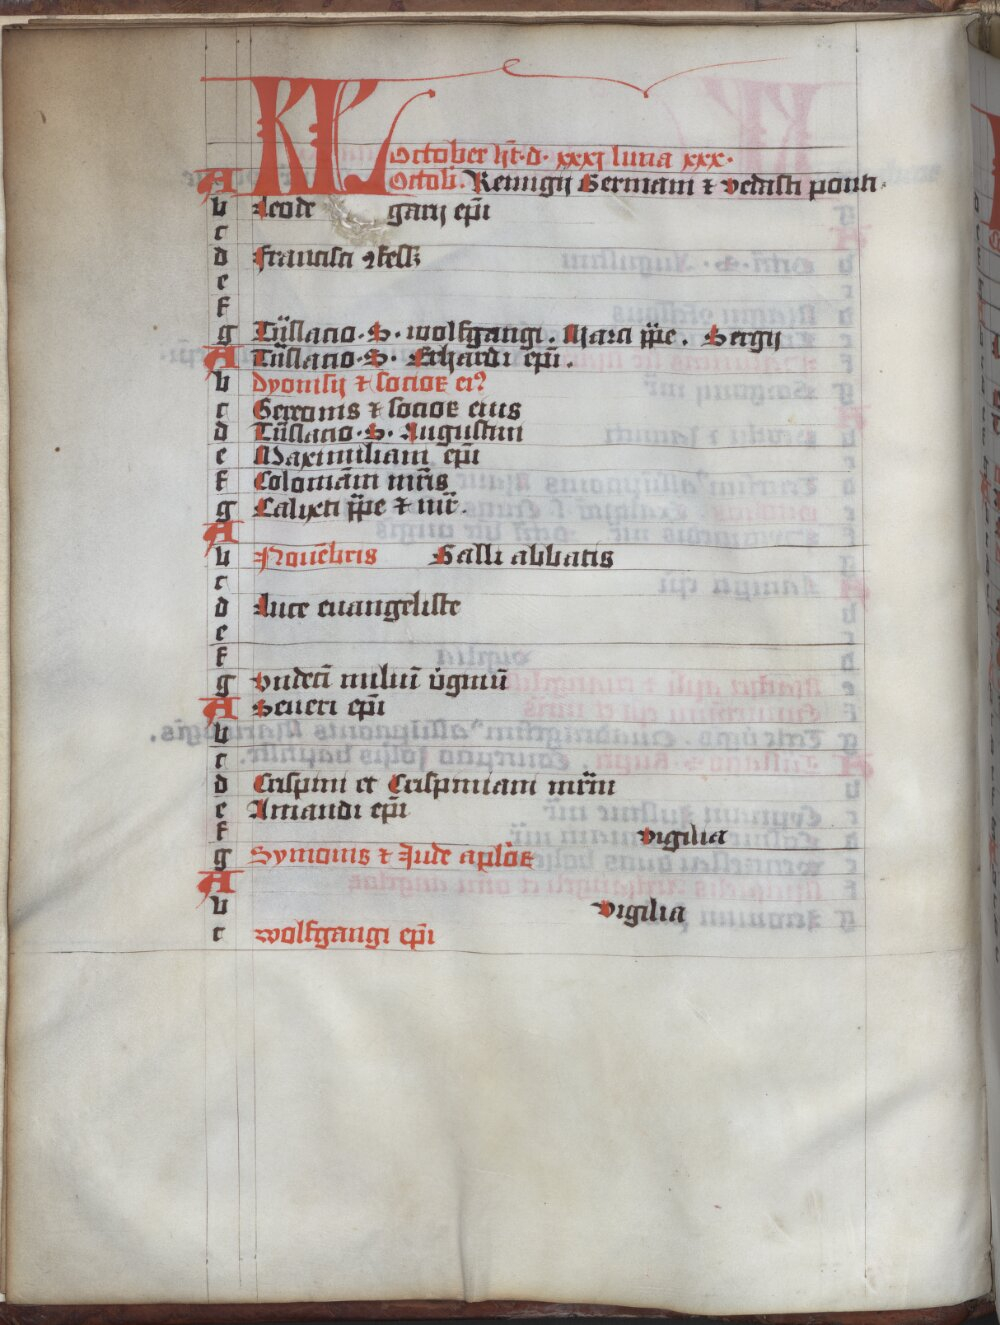 KL October ht· d· xxxi luna xxx·
A Octobr. Remigij Germani ⁊ vedasti ponti·
b Leode garij epi
c
d francisci ꝯfess
e
f
g Trãslatio· S· wolfgangi. Marci ppe. Sergij
A Trãslatio· S· Erhardi epi.
b Dyonisij ⁊ socioꝝ ei9
c Gereonis ⁊ socioꝝ eius
d Trãslatio· S· Augustini
e Maximiliani epi
f Colomani mris
g Calixti ppe ⁊ mr̃.
A
b Nouẽbris Galli abbatis
c
d Luce euangeliste
e
f
g vndeci miliũ v̓ginũ
A Seueri epi
b
c
d Crispini et Crispiniani mr̃m
e Amandi epi
f vigilia
g Symonis ⁊ Jude aplõꝝ
A
b vigilia
c wolfgangi epi